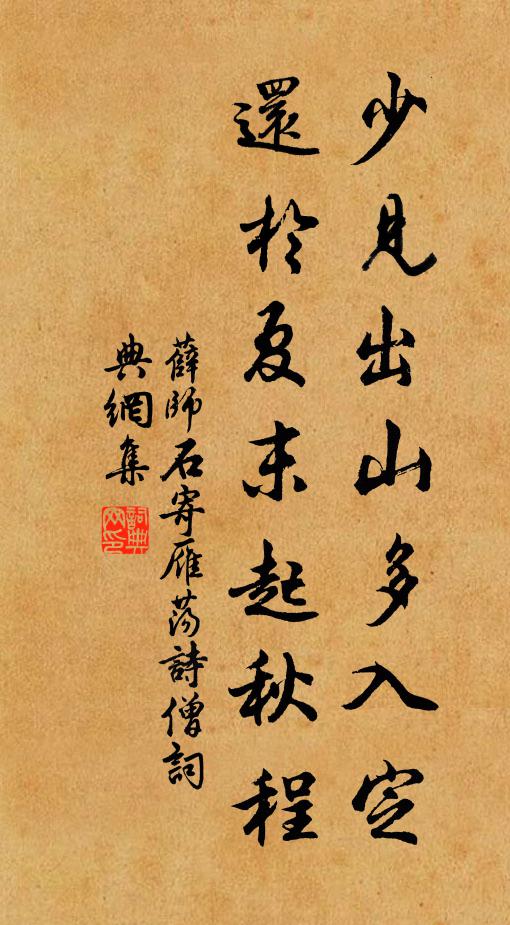 少見出山多入定
還於夏末起秋程
薛師石寄雁蕩詩僧詞
典網集
詞典網印